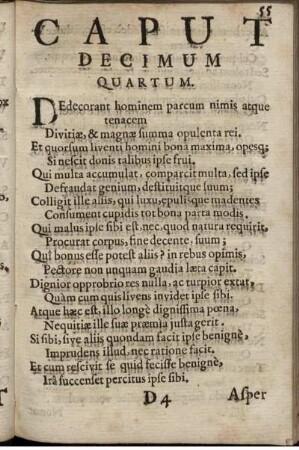 55
CAPUT
DECIMUM
QUARTUM.
DEdecorant hominem parcum nimis atque
tenacem
Divitiæ, & magnæ summa opulenta rei.
Et quorsum liventi homini bona maxima, opesq;
Si nescit donis talibus ipse frui.
Qui multa accumulat, comparcit multa, sed ipse
Defraudat genium, destituitque suum;
Colligit ille aliis, qui luxu, epulisque madentes
Consument cupidis tot bona parta modis.
Qui malus ipse sibi est, nec, quod natura requirit,
Procurat corpus, fine decente, suum;
Qui bonus esse potest aliis? in rebus opimis,
Pectore non unquam gaudia læta capit.
Dignior opprobrio res nulla, ac turpior extat,
Quàm cum quis livens invidet ipse sibi.
Atque hæc est, illo longè dignissima pœna,
Nequitiæ ille suæ præmia justa gerit.
Si sibi, sive aliis quondam facit ipse benignè,
Imprudens illud, nec ratione facit.
Et cum rescivit se quid fecisse benignè,
Irâ succenset percitus ipse sibi.
D 4 Asper